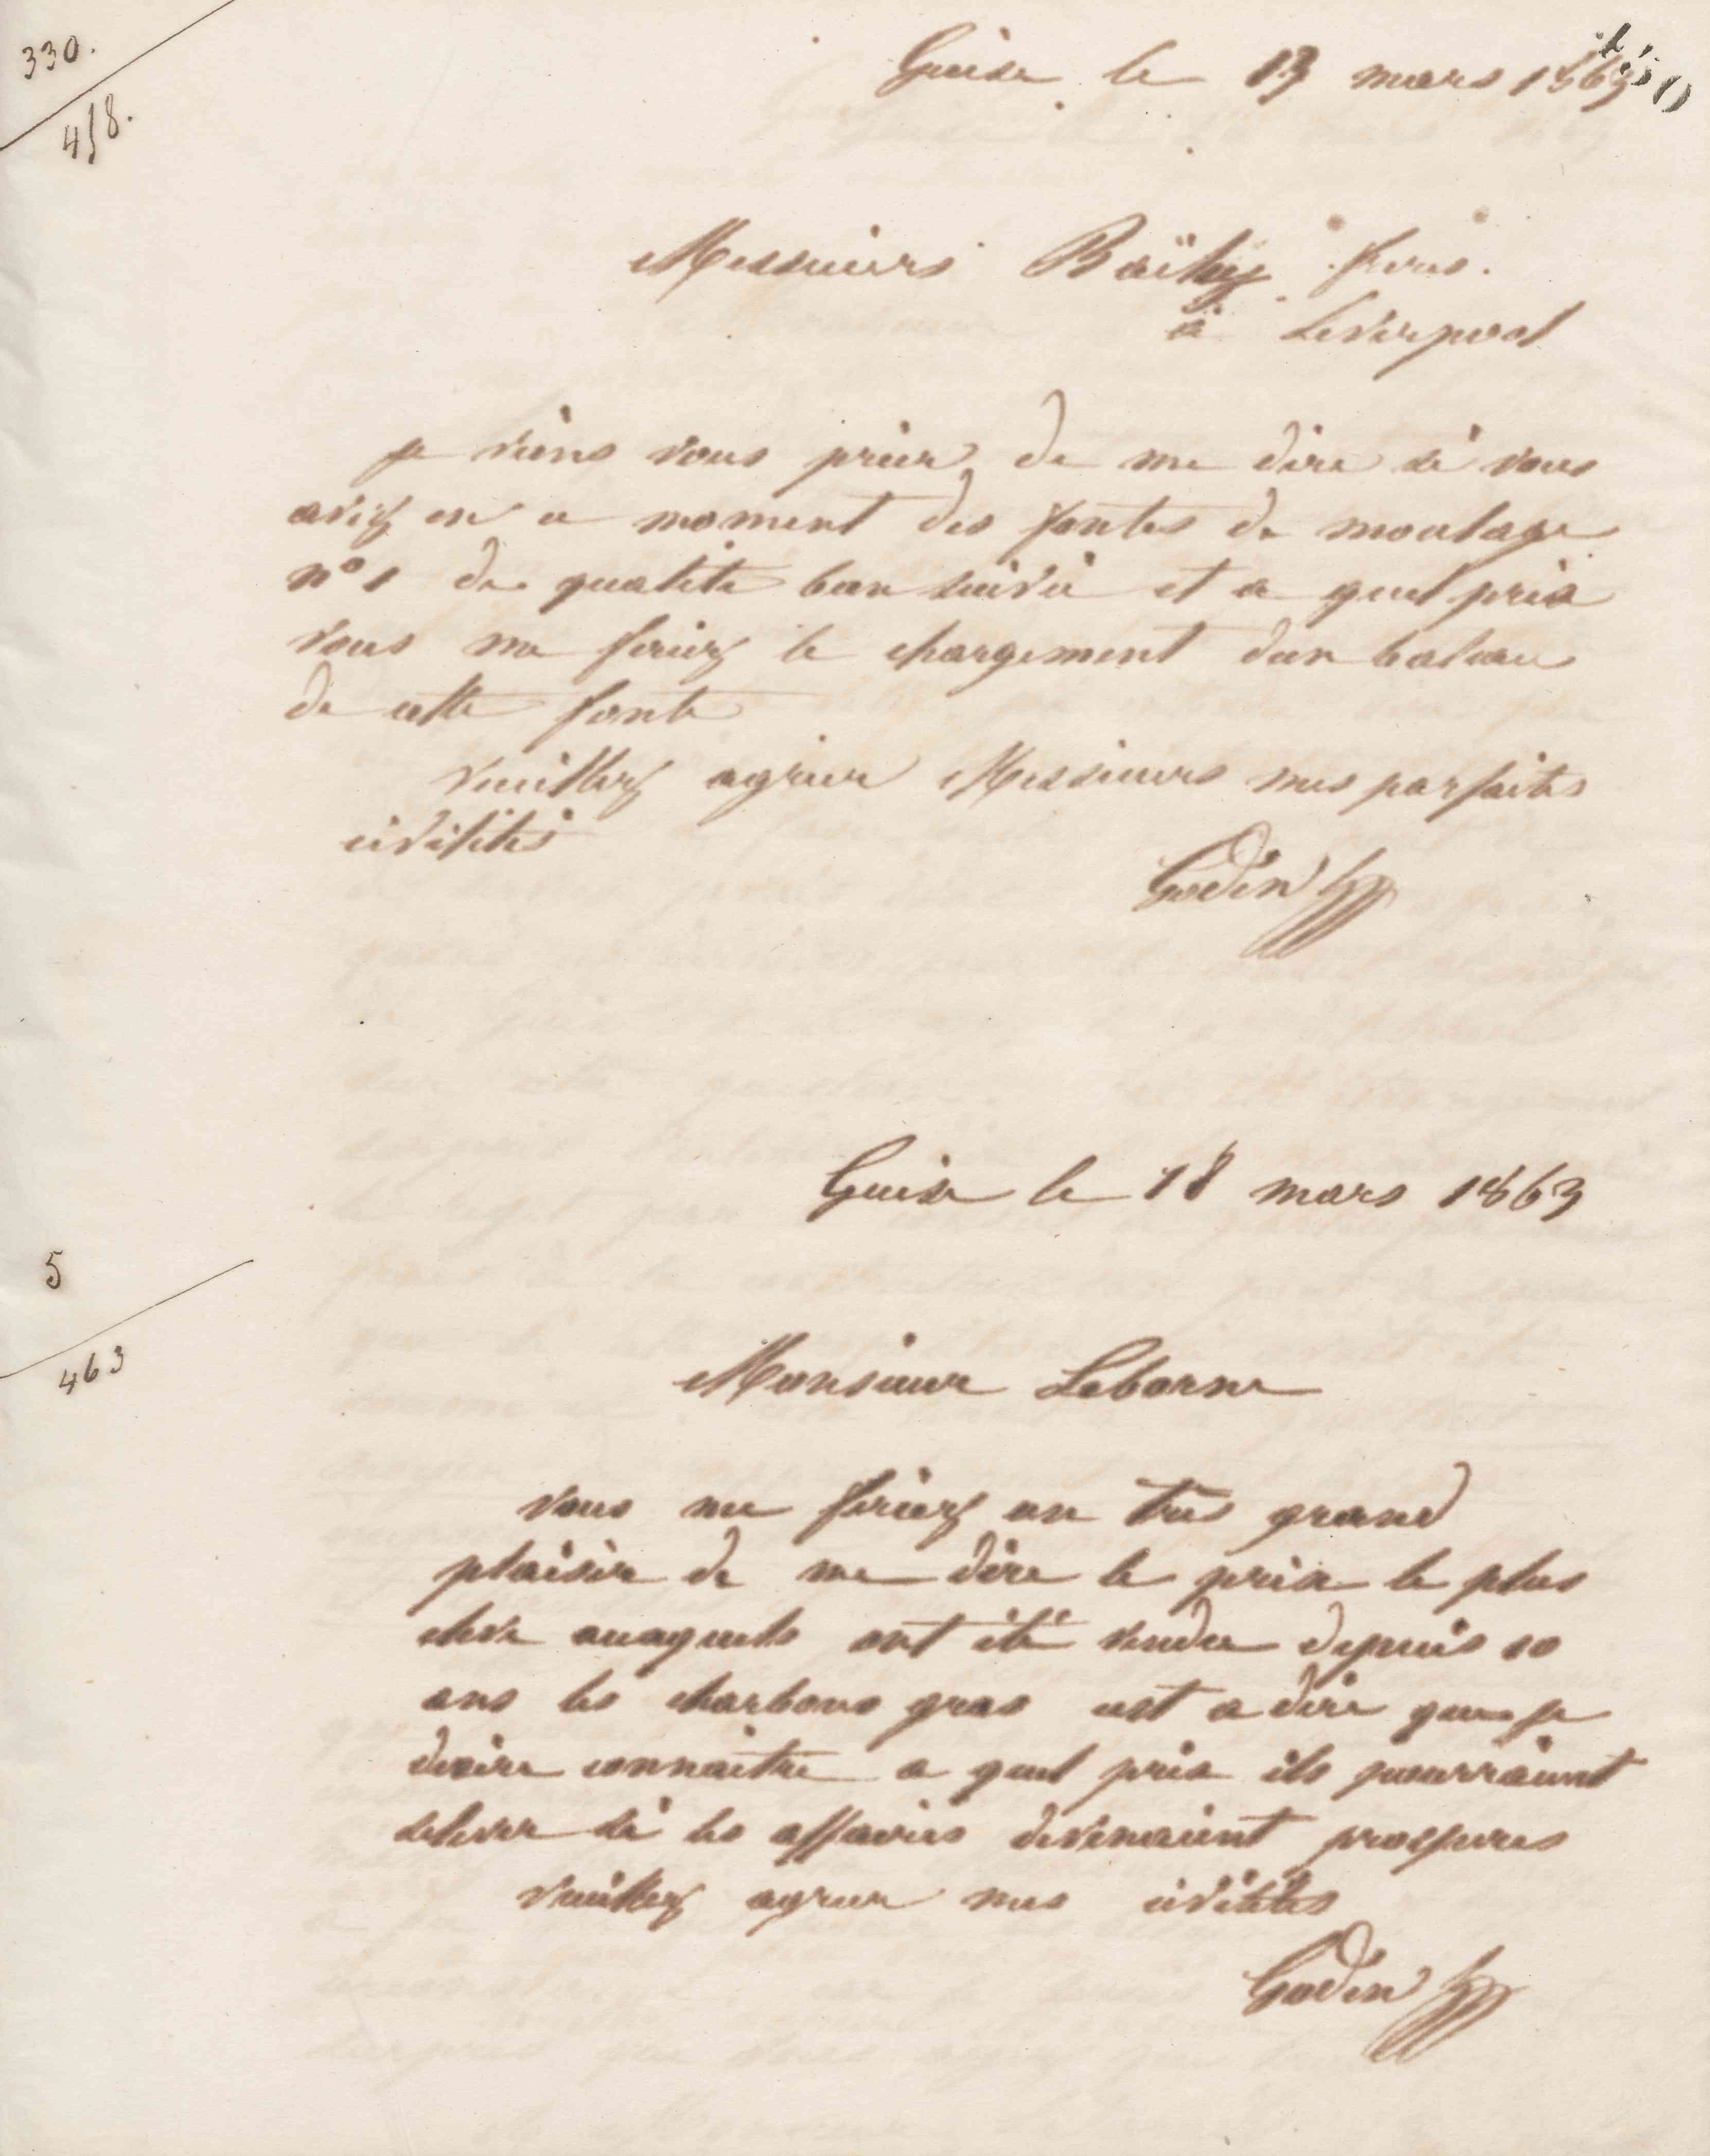 330.
458.
Guise le 13 mars 1863
Messieurs Baïley frères.
à Liverpool
je viens vous prier de me dire si vous
aviez en ce moment des fontes de moulage
n° 1 de qualité bon suivie et a quel prix
vous me feriez le chargement d'un bateau
de cette fonte
veuillez agréer Messieurs mes parfaites
civilités
Godin
Guise le 18 mars 1863
5
463
Monsieur Leborne
vous me feriez un très grand
plaisir de me dire le prix le plus
cher auxquels ont été vendu depuis 10
ans les charbons gras cest a dire que je
desire connaitre a quel prix ils pourraient
selever si les affaires devenaient prosperes
veuillez agreer mes civilités
Godin